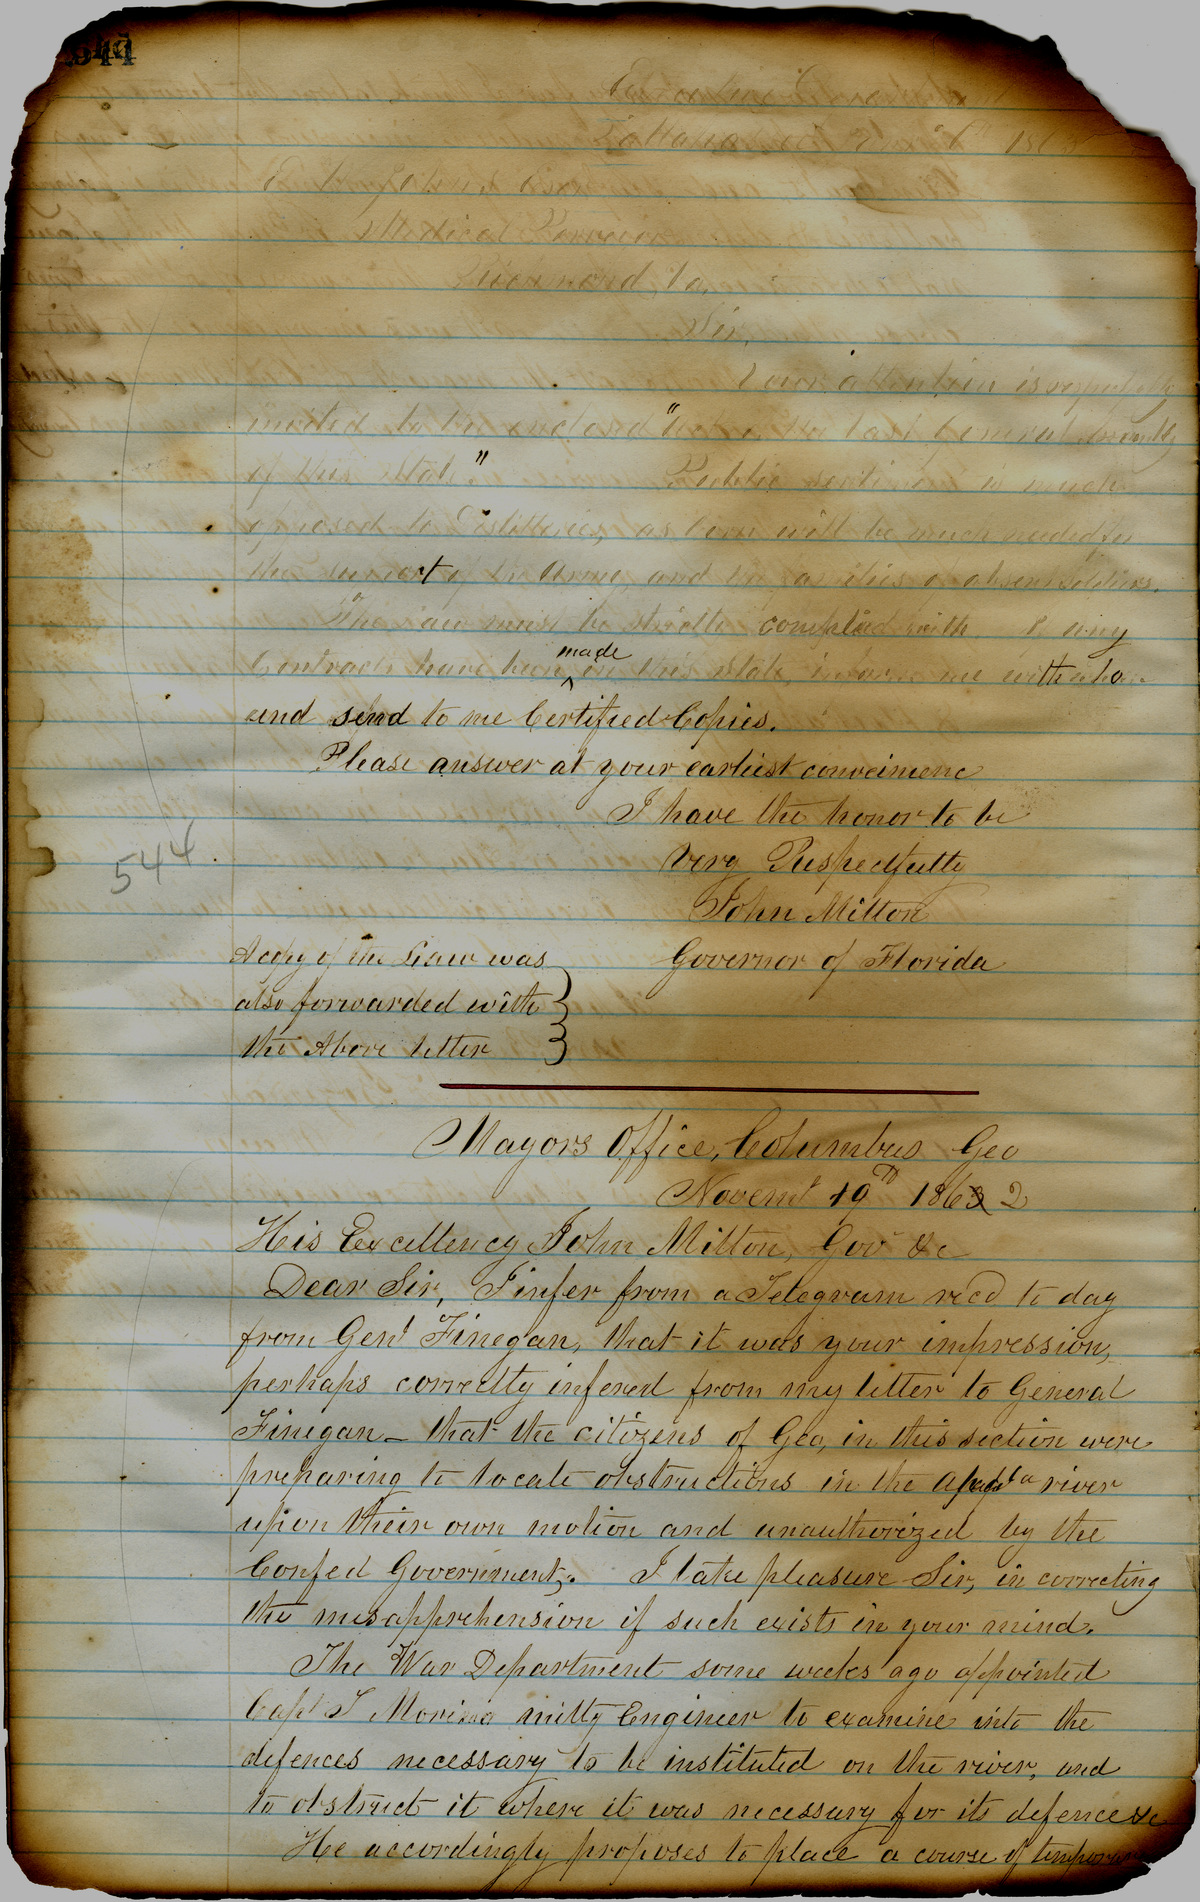 544
Executive
Tallahassee 186
Medical Purveior
Richmond, Va,
Sir,
Your attention is respectfully
invited to the enclosed "act of the last General Assembly
of this State." Public sentiment is much
opposed to Distilleries, as Corn will be much needed for
the support of the Army and the families of absent soldiers.
The law must be strictly complied with. If any
Contracts have been made in this State, inform me with whom
and send to me Certified Copies.
Please answer at your earliest conveinienc
I have the honor to be
Very Respectfully
John Milton
544
A copy of the Law was Governor of Florida
also forwarded with
the Above letter
Mayors Office, Columbus Geo
Novemr 19th 1862
His Excellency John Milton, Gov &c
Dear Sir, I infer from a Telegram recd to day
from Genl Finegan, that it was your impression,
perhaps correctly infered from my letter to General
Finegan – that the citizens of Geo, in this section were
preparing to locate obstructions in the river
upon their own motion and unauthorized by the
Confed Government,. I take pleasure Sir, in correcting
the misapprehension if such exists in your mind.
The War Department some weeks ago appointed
Capt T Moreno milty Engineer to examine into the
defences necessary to be instituted on the river, and
to obstruct it where it was necessary for its defence &c
He accordingly proposes to place a course of temporary